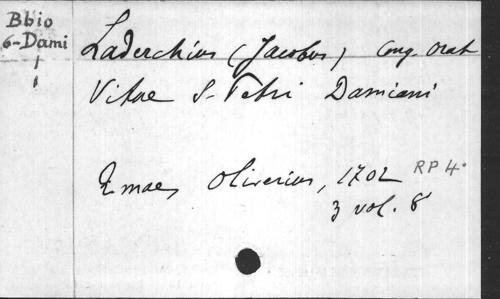 Bbio
6-Dami
1
1
Laderchius (Jacobus) Cong. Orat
Vitae S. Petri Damiani
Romae, Oliverius, 1702 RP 4°
3 vol. 8°